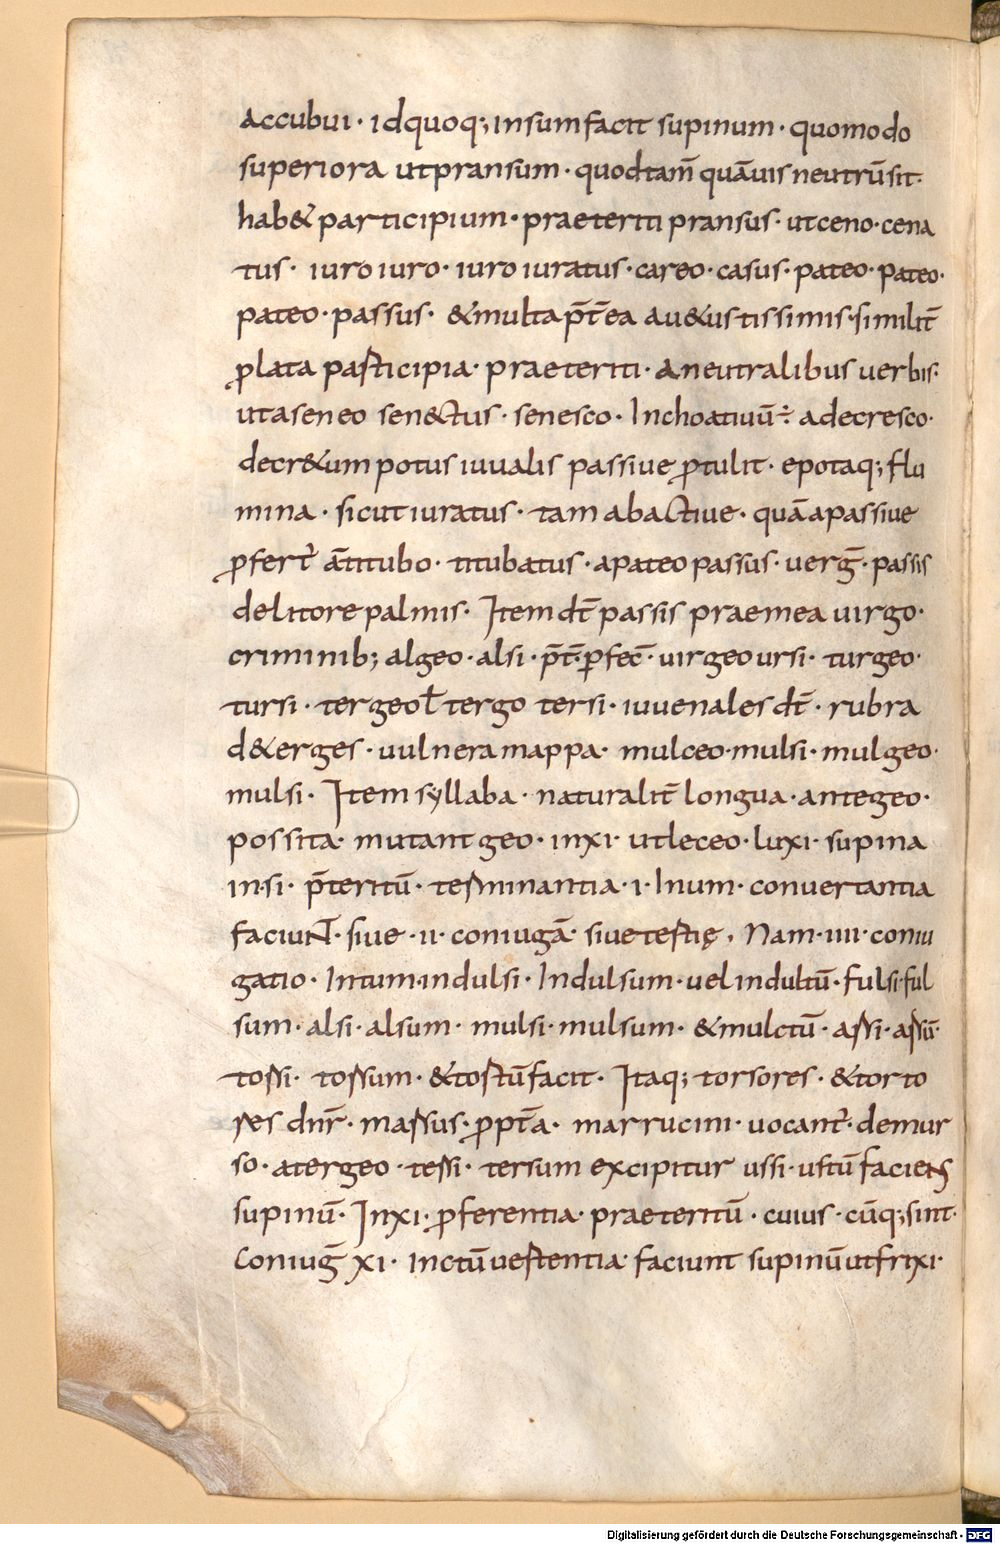 accubui · idquoq; insumfacit supinum · quomodo
superiora utpransum · quodtam̄ quāuis neutrūsit ·
hab& participium · praeteriti pransus · utceno · cena
tus · iuro iuro · iuro iuratus · careo · casus · pateo · pateo ·
pateo · passus · &multa p̄t̄ea au&ustissimis · similit̄
ꝓlata participia · praeteriti · aneutralibus uerbis ·
utaseneo sen&ctus · senesco · Inchoatiuū ÷ adecresco ·
decr&um potus iuualis passiue ꝓtulit · epotaq; flu
mina · sicut iuratus · tam abactiue · quāapassiue
ꝓfert᷑ āttitubo · titubatus · apateo passus · uerḡ · passis
delitore palmis · Item dt̄ passis praemea uirgo ·
criminib; algeo · alsi · p̄t̄ · ꝑfec̄ · uirgeo ursi · turgeo ·
tursi · tergeo ł tergo tersi · iuuenales dt̄ · rubra
d&erges · uulnera mappa · mulceo · mulsi · mulgeo ·
mulsi · Item syllaba · naturalit̄ longua · antegeo ·
possita · mutant geo · inxi · utleceo · luxi · supina
in · si · p̄teritū · terminantia · i · Inum · conuertantia
faciunt · siue · ii · coniugā · siuetertię , Nam · iiii · coniu
gatio · Intum · indulsi · Indulsum · uel indultū · fulsi · ful
sum · alsi · alsum · mulsi · mulsum · &mulctū · assi · assū ·
tossi · tossum · &tostū facit · Itaq; torsores · &torto
res dnr̄ · massus · ꝓpt̄a · marrucini · uocant᷑ · demur
so · atergeo · tessi · tersum excipitur ussi · ustū faciens
supinū · Inxi · ꝓferentia · praeteritū · cuius · cūq; sint ·
Coniuḡ xi · inctū uertentia faciunt supinū utfrixi ·
Digitalisierung gefördert durch die Deutsche Forschungsgemeinschaft - DFG